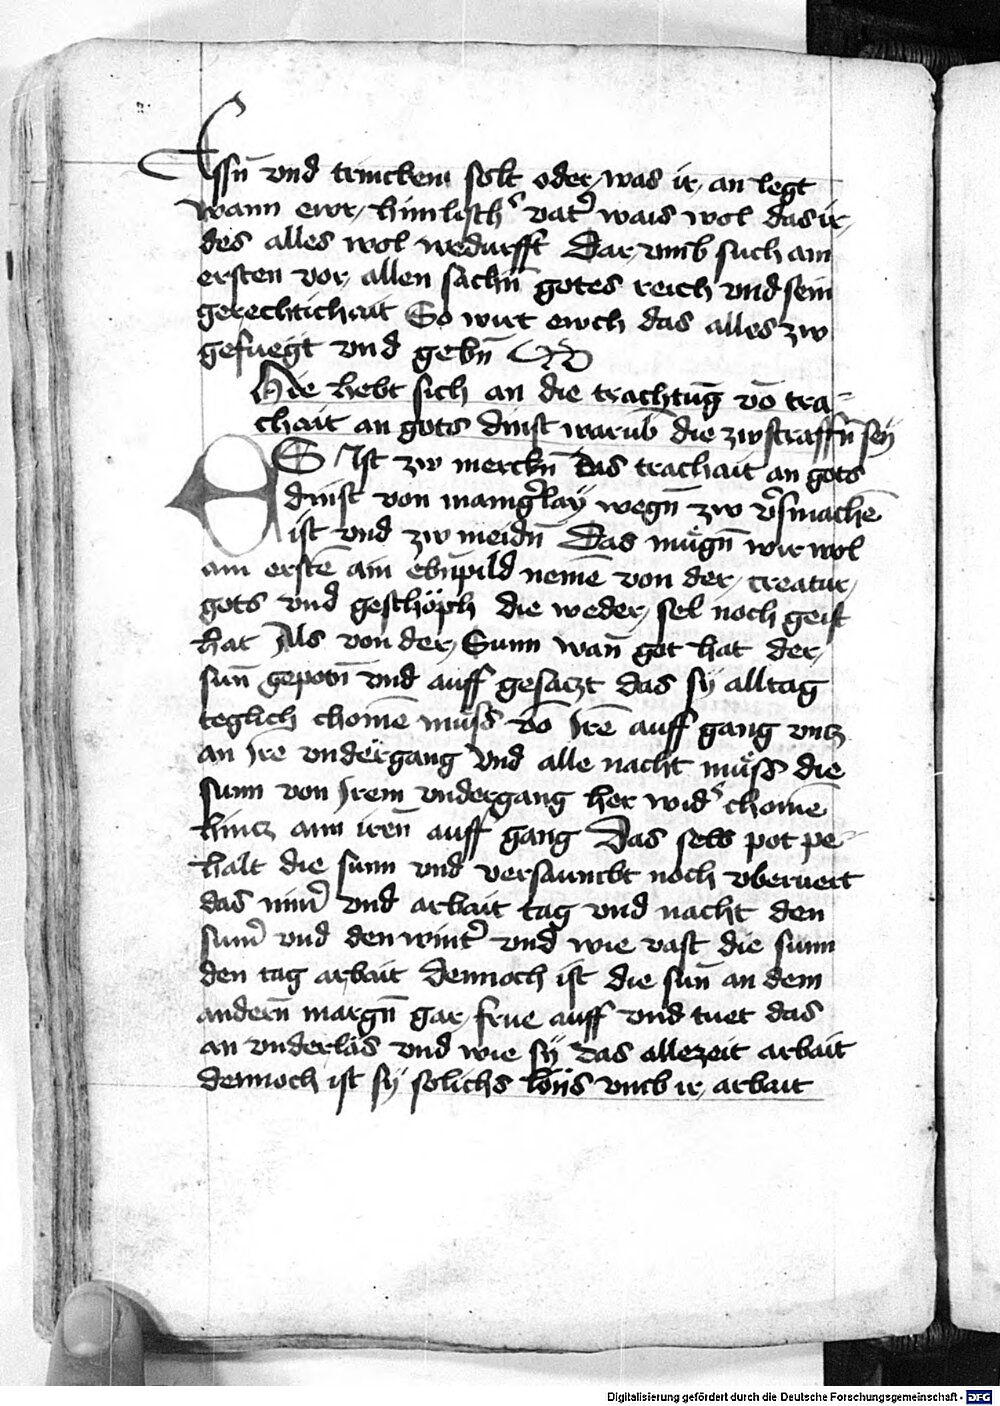 Essn̄ vnd trinckem solt oder was ir an legt
wann ewr himlischˢ vatˀ wais wol das ir
des alles wol wedurfft Dar vmb such am
ersten vor allen sachn̄ gotes reich vnd sein
gerechtichait So wirt ewch das alles zw
gefuegt vnd gebn̄
Hie hebt sich an die trachtūg vō tra-
chait an gots dinst warūb die zw straffn̄ sey
ES Ist zw merckn̄ das trachait an gots
dinst von manigˀlaÿ wegn̄ zw vˀsmachē
ist vnd zw meidn̄ Das mügn̄ wir wol
am erstē ain ebn̄pild nemē von der creatur
gots vnd geschöph die weder sel noch geist
hat Als von der Sunn wan̄ got hat der
sun̄ gepotn̄ vnd auff gesaczt das sÿ alltag
teglich chomē müss vō Irē auff gang vntz
an Irē vndergang Vnd alle nacht müss die
sunn von Irem vndergang her widˢ chomē
hincz ann iren̄ auff gang Das selb pot pe-
halt die sunn vnd versaumbt noch vberuert
das nimˀ vnd arbait tag vnd nacht den
sumˀ vnd den wintˀ vnd wie vast die sunn
den tag arbait dennoch ist die sun̄ an dem
andern̄ margn̄ gar frue auff vnd tuet das
an vnderläs vnd wie sÿ das allezeit arbait
dennoch ist sÿ solichs löns vmb ir arbait
Digitalisierung gefördert durch die Deutsche Forschungsgemeinschaft - DFG